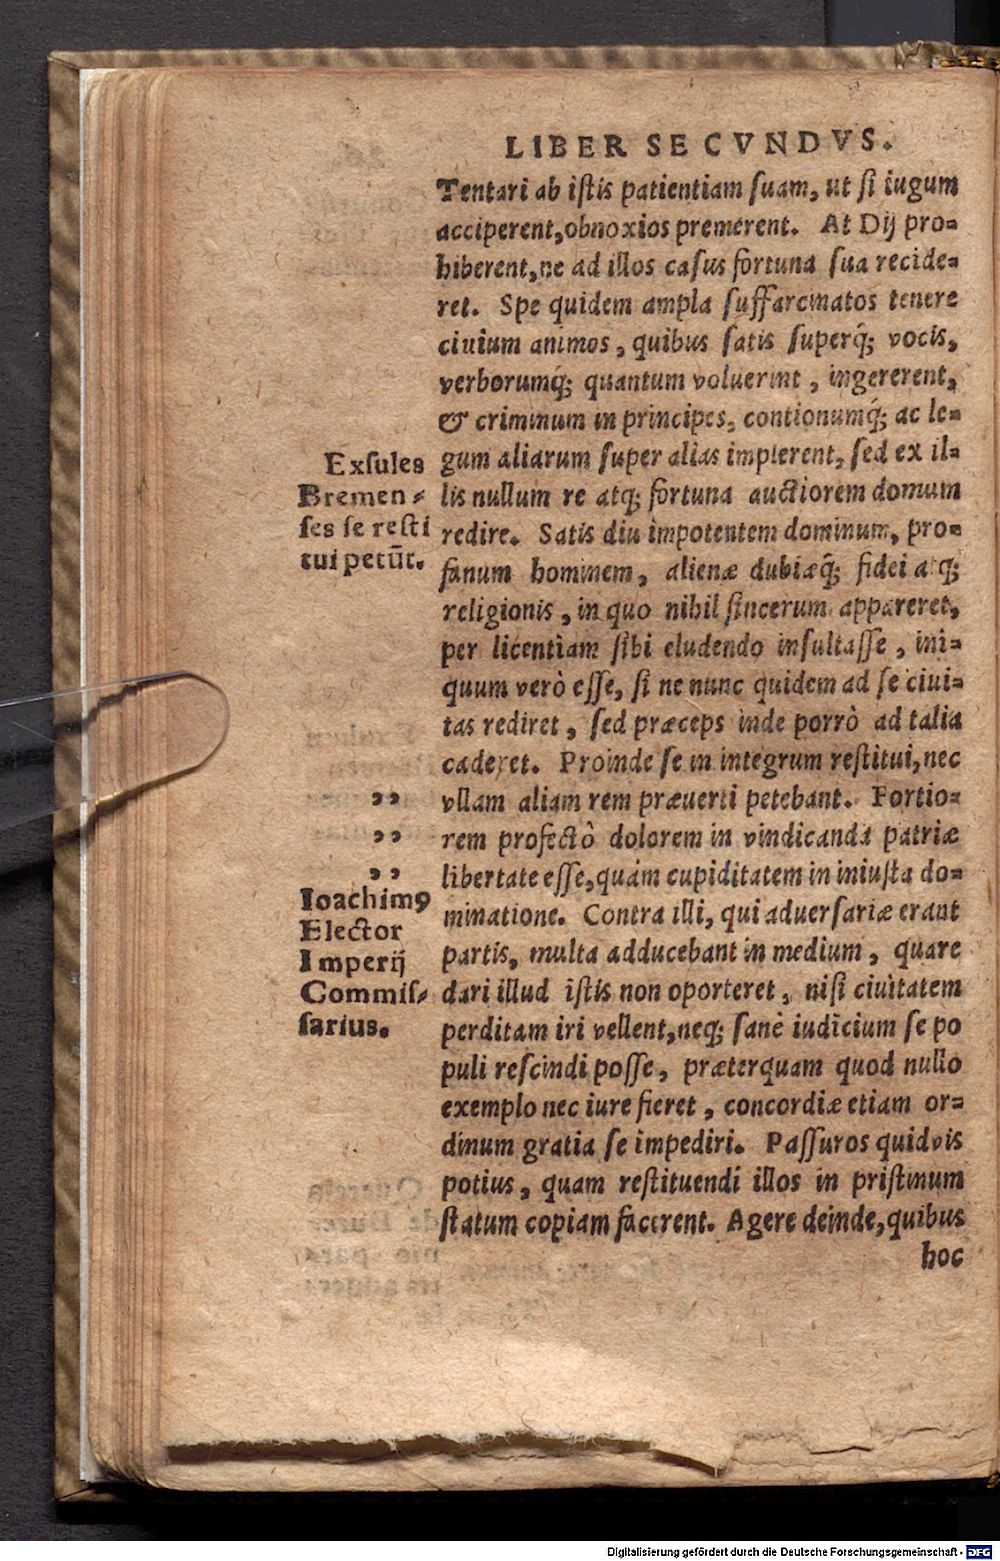 LIBER SECVNDVS.
Tentari ab istis patientiam suam, ut si iugum
acciperent, obnoxios premerent. At Dij pro=
hiberent, ne ad illos casus fortuna sua recide=
ret. Spe quidem ampla suffarcinatos tenere
ciuium animos, quibus satis superq́; vocis,
verborumq́; quantum voluerint, ingererent,
& criminum in principes, contionumq́; ac le=
gum aliarum super alias implerent, sed ex il=
lis nullum re atq; fortuna auctiorem domum
redire. Satis diu impotentem dominum, pro=
fanum hominem, alienæ dubiæq́; fidei atq;
religionis, in quo nihil sincerum appareret,
per licentiam sibi eludendo insultasse, ini=
quum verò esse, si ne nunc quidem ad se ciui=
tas rediret, sed præceps inde porrò ad talia
caderet. Proinde se in integrum restitui, nec
vllam aliam rem præuerti petebant. Fortio=
rem profectò dolorem in vindicanda patriæ
libertate esse, quàm cupiditatem in iniusta do=
minatione. Contra illi, qui aduersariæ erant
partis, multa adducebant in medium, quare
dari illud istis non oporteret, nisi ciuitatem
perditam iri vellent, neq; sanè iudicium se po
puli rescindi posse, præterquam quod nullo
exemplo nec iure fieret, concordiæ etiam or=
dinum gratia se impediri. Passuros quiduis
potius, quam restituendi illos in pristinum
statum copiam facerent. Agere deinde, quibus
hoc
Exsules
Bremen=
ses se resti
tui petūt.
,,
,,
,,
Ioachimꝰ
Elector
Imperij
Commis=
sarius.
Digitalisierung gefördert durch die Deutsche Forschungsgemeinschaft - DFG